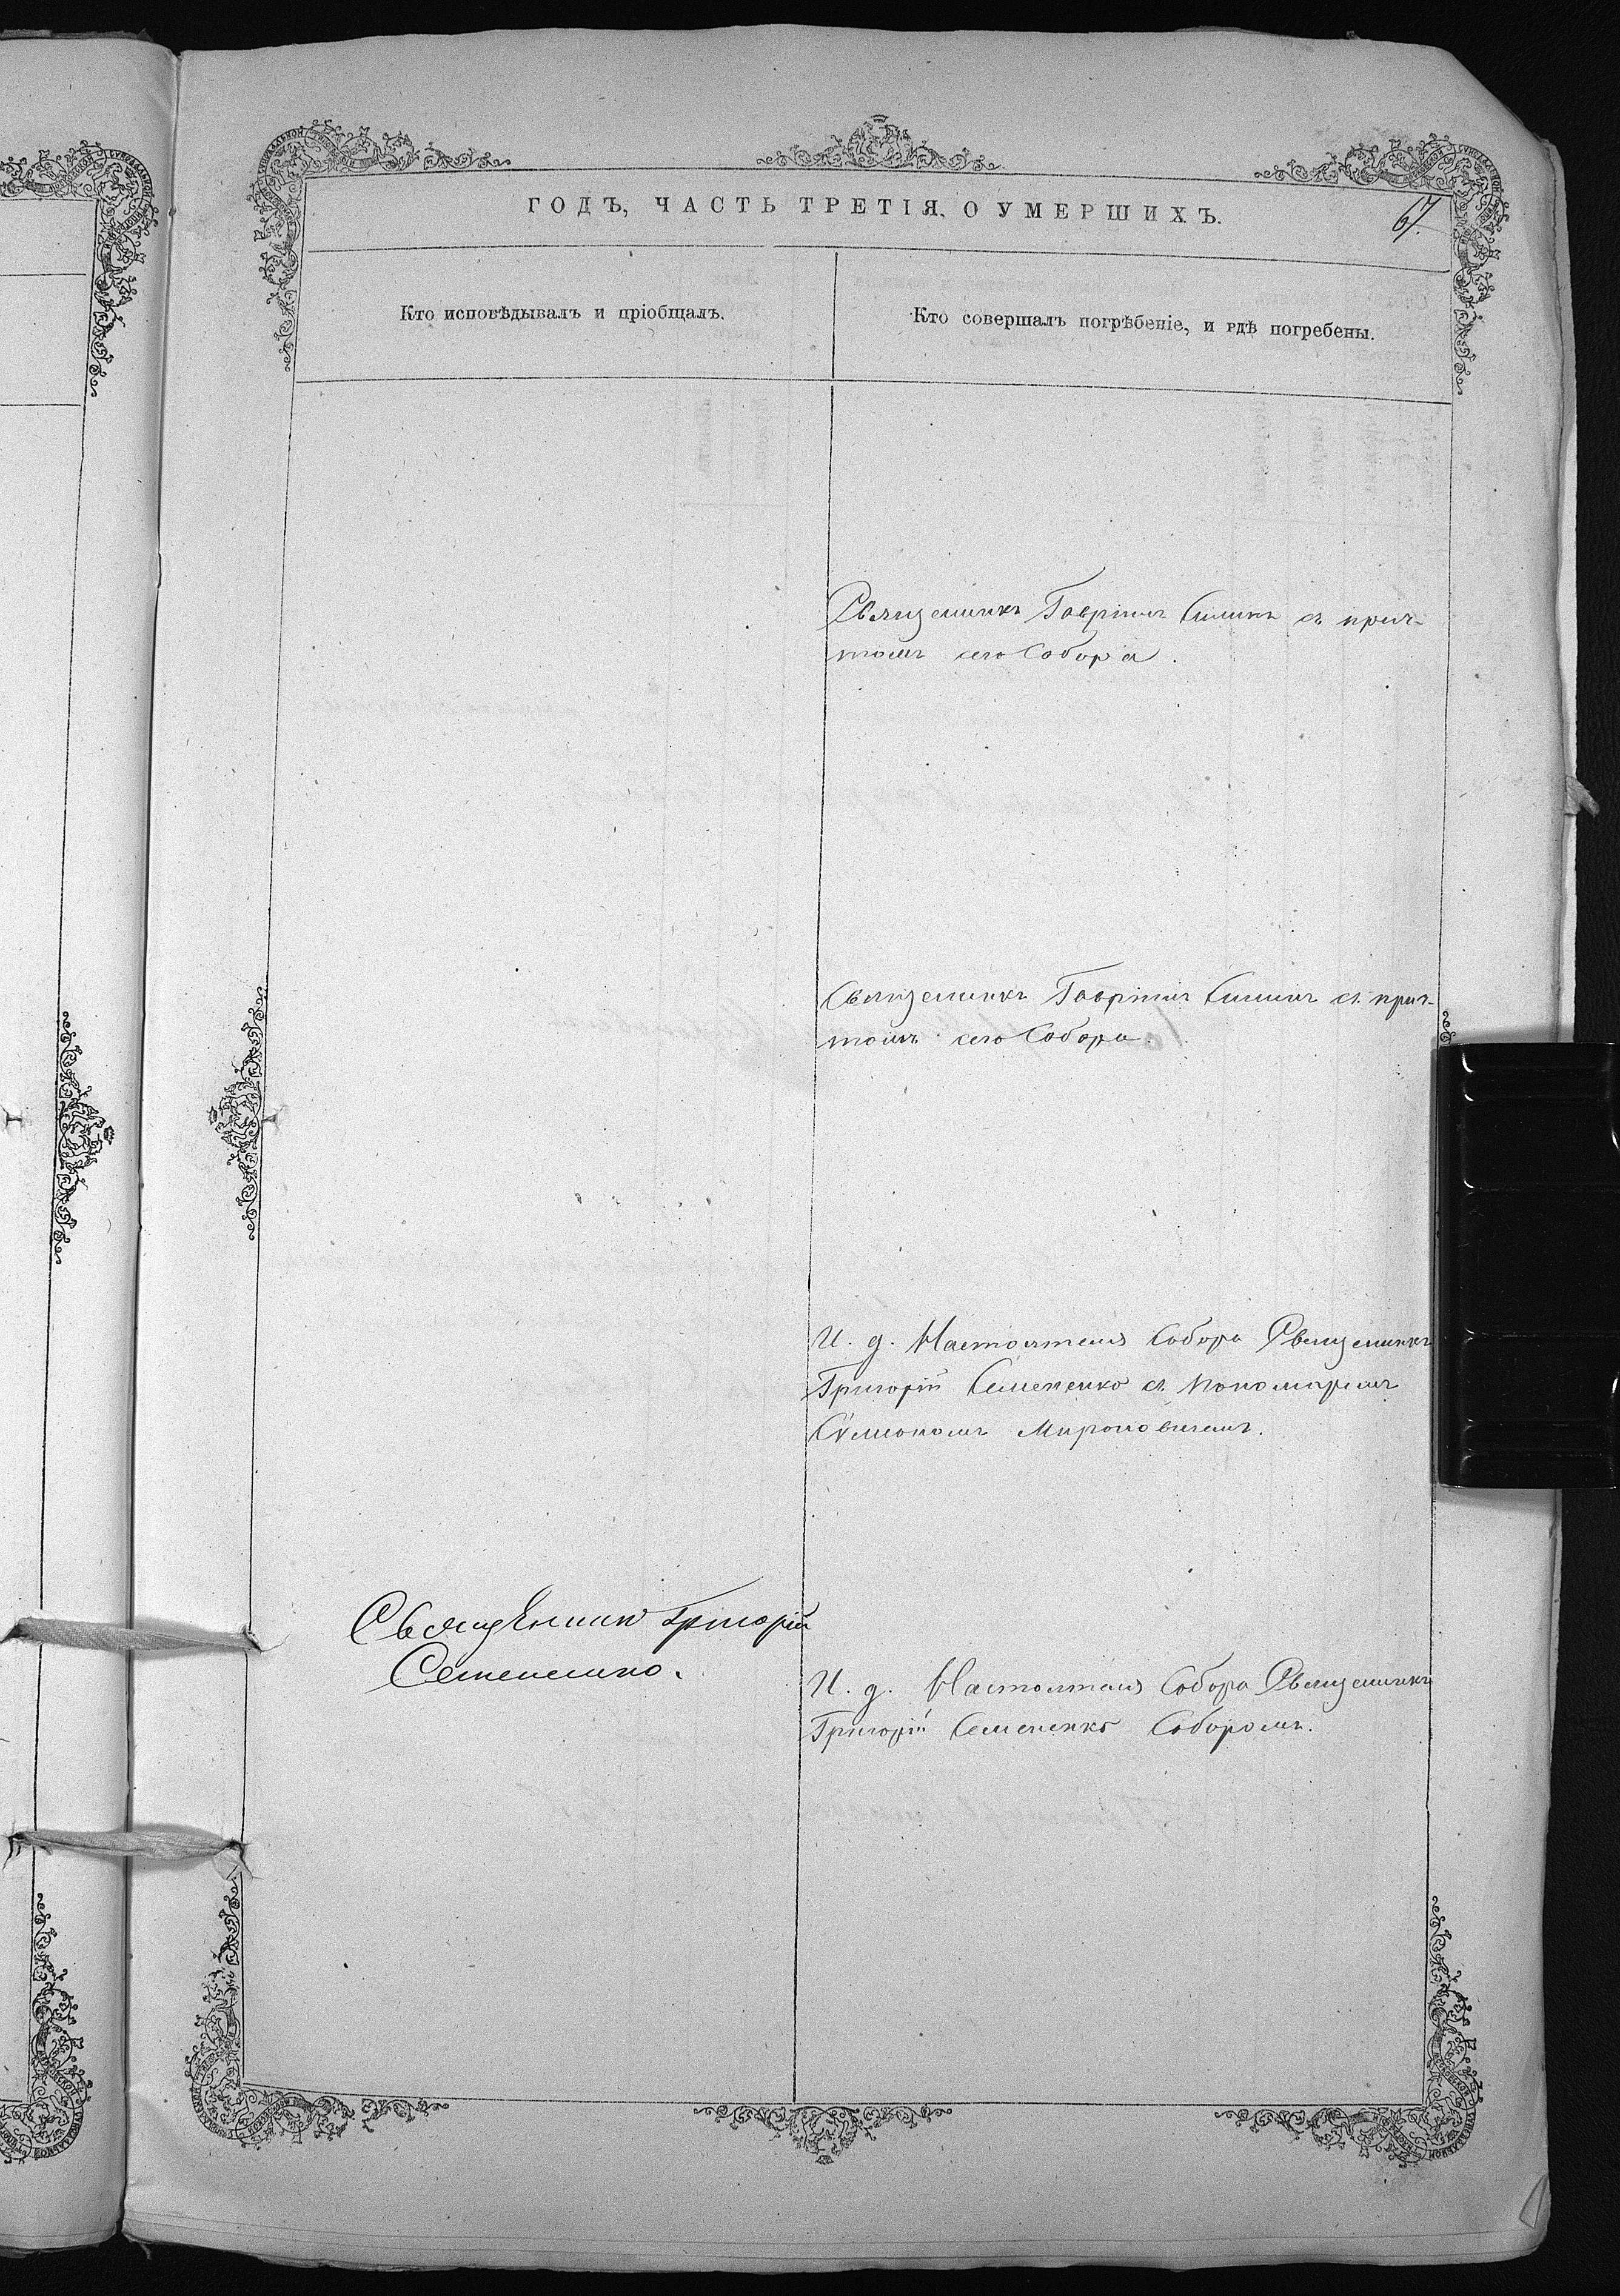 ГОДЪ, ЧАСТЬ ТРЕТІЯ, О УМЕРШИХЪ.
67.
Кто исповѣдывалъ и пріобщалъ.
Кто совершалъ погрѣбеніе, и гдѣ погребены.
Священникъ Гавріилъ съ прич-
томъ сего Собора.
Священникъ Гавріилъ съ прич-
томъ сего Собора.
И. д. Настоятеля Собора Священникъ
Григорій Семененко съ Пономаремъ
Сѵмономъ Мироновичемъ.
Священникъ Григорій
Семененко.
И. д. Настоятеля Собора Священникъ
Григорій Семененко Соборомъ.